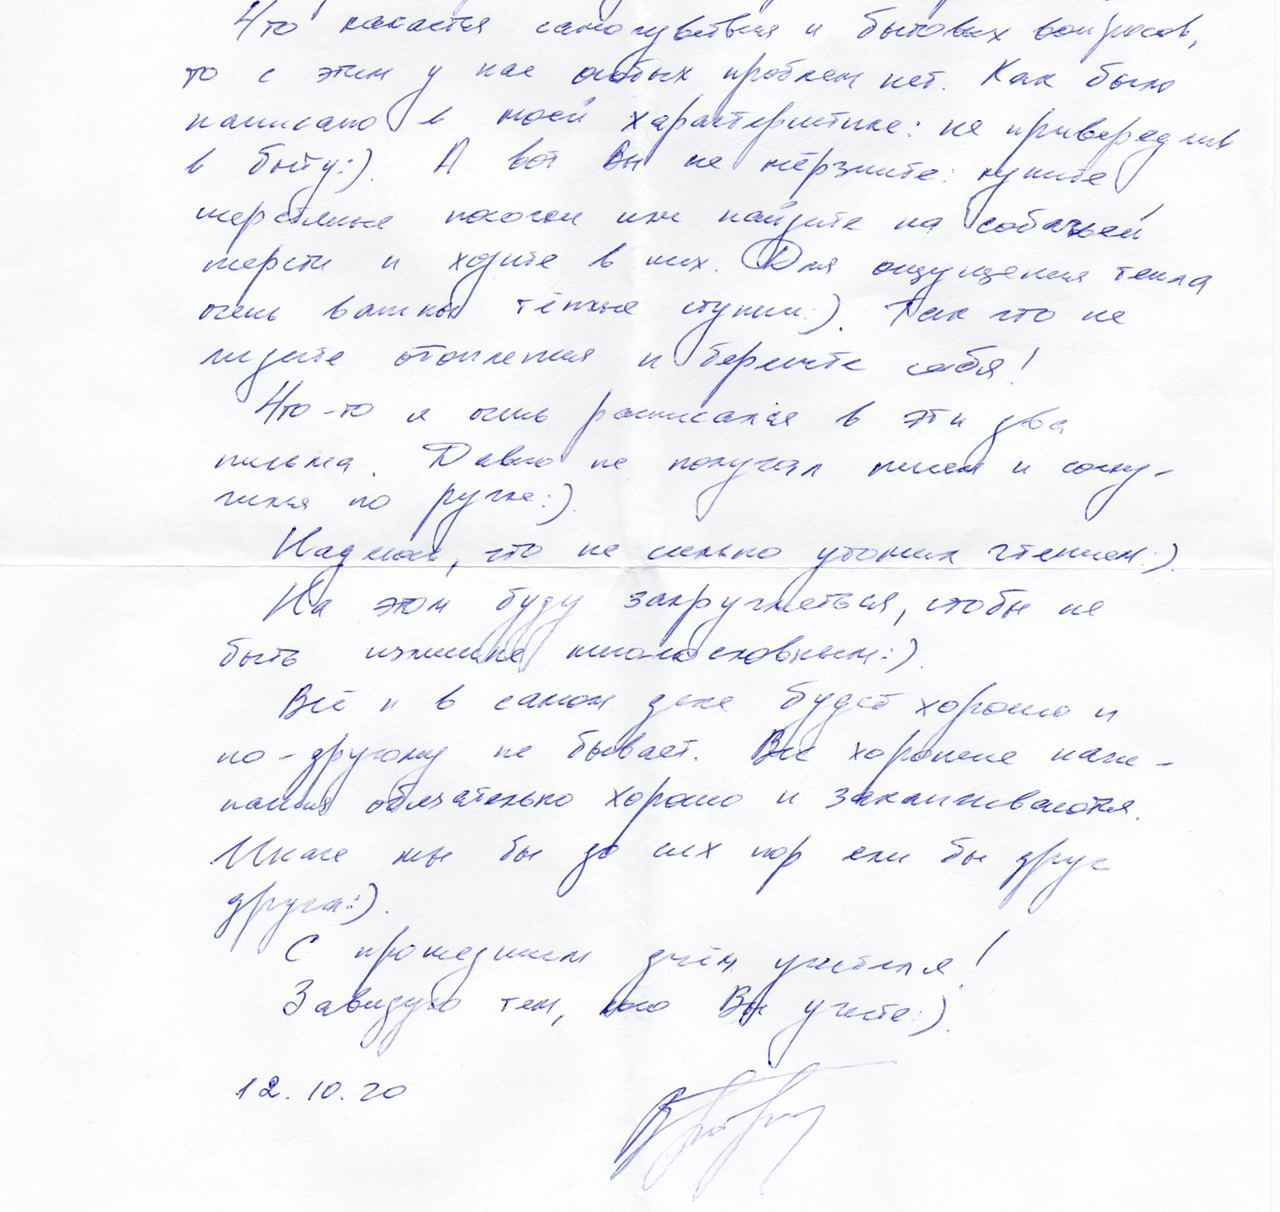 Что касается самочувствия и бытовых вопросов,
то с этим у нас особых проблем нет. Как было
написано в моей характеристике: не привередлив
в быту:). А вот Вы не мёрзните: купите
шерстяные носочки или найдите на собачьей
шерсти и ходите в них. Для ощущения тепла
очень важны тёплые ступни:). Так что не
ждите отопления и берегите себя!
Что-то я очень расписался в эти два
письма. Давно не получал писем и соску-
чился по ручке:).
Надеюсь, что не сильно утомил чтением:).
На этом буду закругляться, чтобы не
быть излишне многословным:).
Всё и в самом деле будет хорошо и
по-другому не бывает. Все хорошие начи-
нания обязательно хорошо и заканчиваются.
Иначе мы бы до сих пор ели бы друг
друга:).
С прошедшим днём учителя!
Завидую тем, кого Вы учите:).
12.10.20